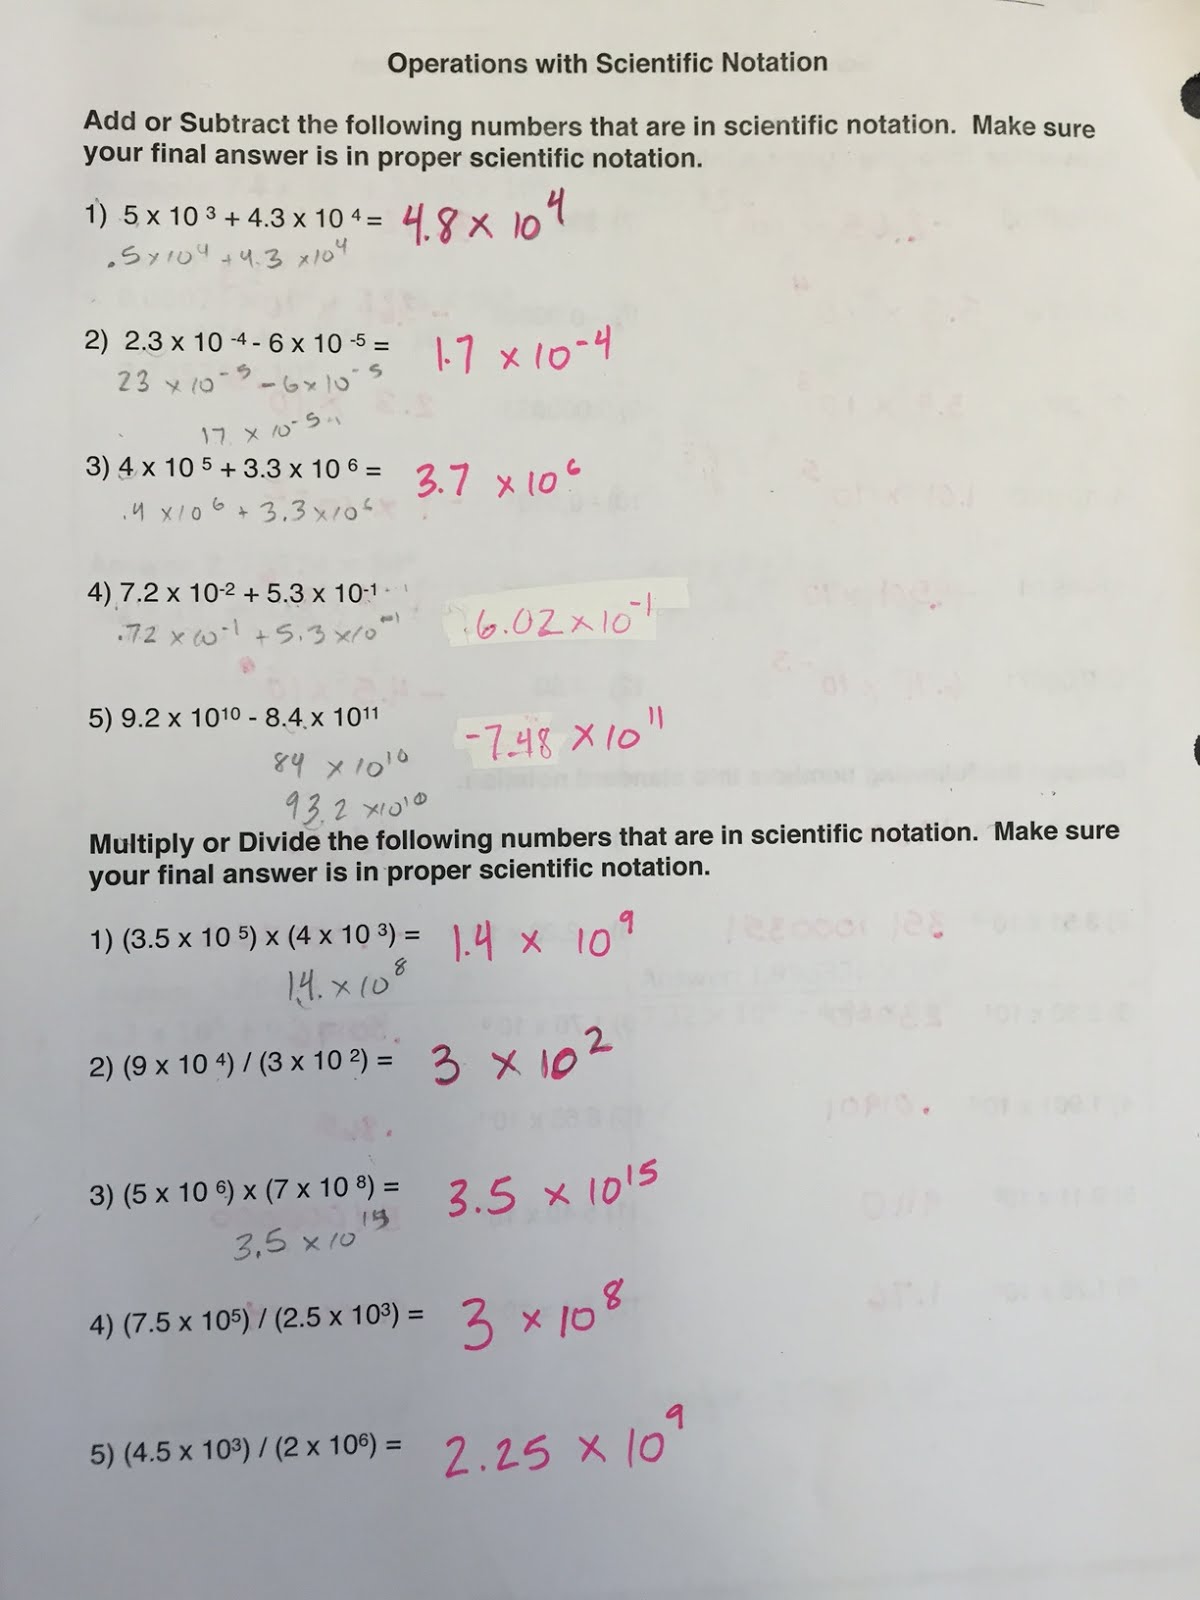 Operations with Scientific Notation
Add or Subtract the following numbers that are in scientific notation. Make sure
your final answer is in proper scientific notation.
1) 5 x 10 ³ + 4.3 x 10 ⁴ = 4.8 x 10⁴
.5 x 10⁴ + 4.3 x 10⁴
2) 2.3 x 10 ⁻⁴ - 6 x 10 ⁻⁵ = 1.7 x 10⁻⁴
23 x 10⁻⁵ - 6 x 10⁻⁵
17 x 10⁻⁵
3) 4 x 10 ⁵ + 3.3 x 10 ⁶ = 3.7 x 10⁶
.4 x 10⁶ + 3.3 x 10⁶
4) 7.2 x 10⁻² + 5.3 x 10⁻¹ 6.02 x 10⁻¹
.72 x 10⁻¹ + 5.3 x 10⁻¹
5) 9.2 x 10¹⁰ - 8.4 x 10¹¹ -7.48 x 10¹¹
84 x 10¹⁰
93.2 x 10¹⁰
Multiply or Divide the following numbers that are in scientific notation. Make sure
your final answer is in proper scientific notation.
1) (3.5 x 10 ⁵) x (4 x 10 ³) = 1.4 x 10⁹
14. x 10⁸
2) (9 x 10 ⁴) / (3 x 10 ²) = 3 x 10²
3) (5 x 10 ⁶) x (7 x 10 ⁸) = 3.5 x 10¹⁵
3.5 x 10¹⁵
4) (7.5 x 10⁵) / (2.5 x 10³) = 3 x 10⁸
5) (4.5 x 10³) / (2 x 10⁶) = 2.25 x 10⁹